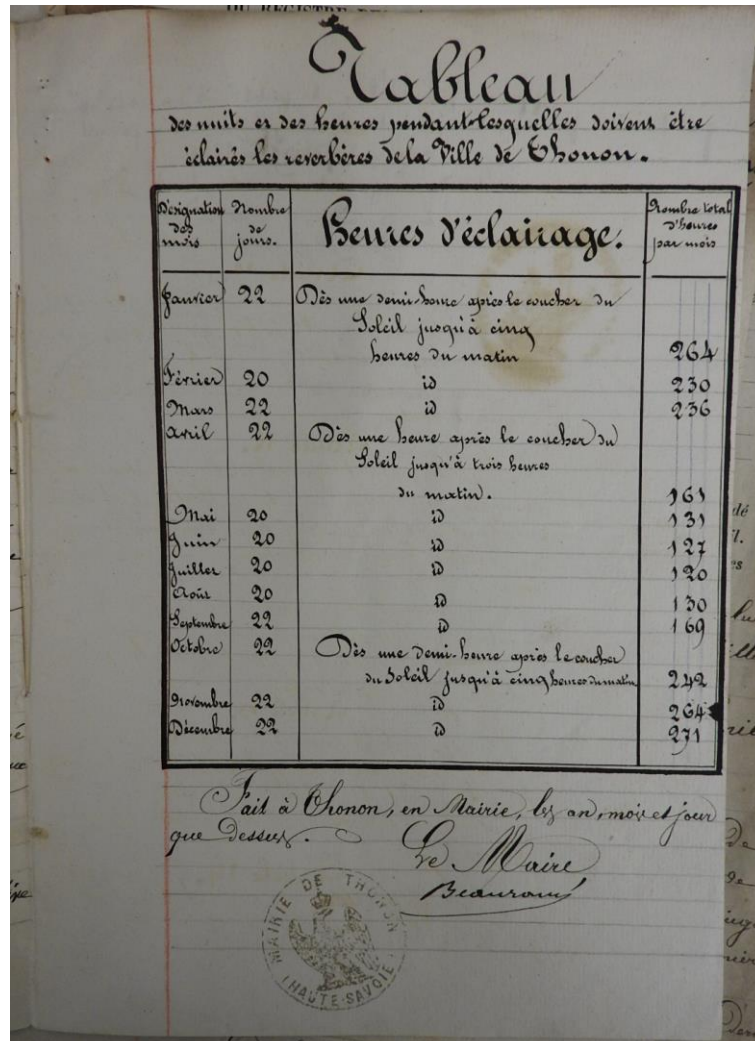 DU REGISTRE DES
Tableau
des nuits et des heures pendant lesquelles doivent être
éclairés les reverbères de la Ville de Thonon.
Désignation des mois Nombre de jours. Heures d'éclairage. Nombre total d'heures par mois
Janvier 22 Dès une demi-heure après le coucher du
Soleil jusqu'à cinq
heures du matin 264
Février 20 id 230
Mars 22 id 236
Avril 22 Dès une heure après le coucher du
Soleil jusqu'à trois heures
du matin. 161
Mai 20 id 131
Juin 20 id 127
Juillet 20 id 120
Août 20 id 130
Septembre 22 id 169
Octobre 22 Dès une demi-heure après le coucher
du Soleil jusqu'à cinq heures du matin 242
Novembre 22 id 264
Décembre 22 id 271
Fait à Thonon, en Mairie, les an, mois et jour
que dessus.
Le Maire
MAIRIE DE THONON
(HAUTE-SAVOIE)